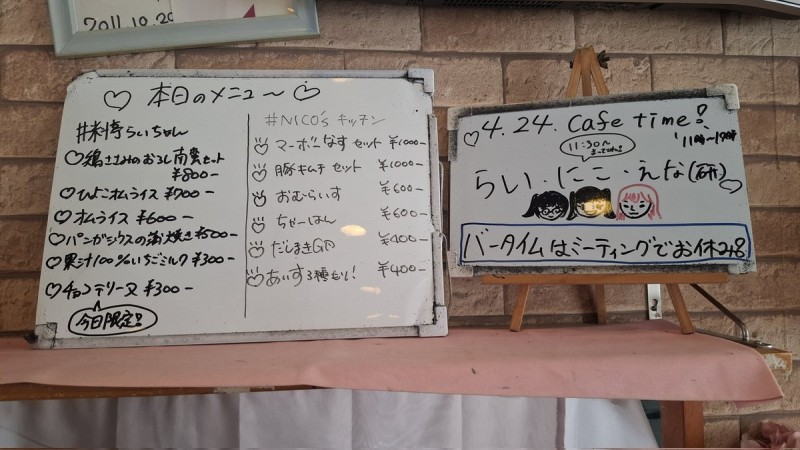 2011.10.20
♡ 本日のメニュー〜 ♡
♡鶏ささみのおろし南蛮セット
¥800-
♡ひよこオムライス ¥700-
♡オムライス ¥600-
♡パンガシウスの蒲焼き ¥500-
♡果汁100%いちごミルク ¥300-
♡チョコテリーヌ ¥300-
今日限定!!
#NICO's キッチン
マーボーなすセット ¥1000-
豚キムチセット ¥1000-
おむらいす ¥600-
ちゃーはん ¥600-
だしまき ¥400-
あいす3種もり! ¥400-
♡4.24. Cafe time!
11時〜17時
11:30〜
らい・にこ・えな(研)♡
バータイムはミーティングでお休み